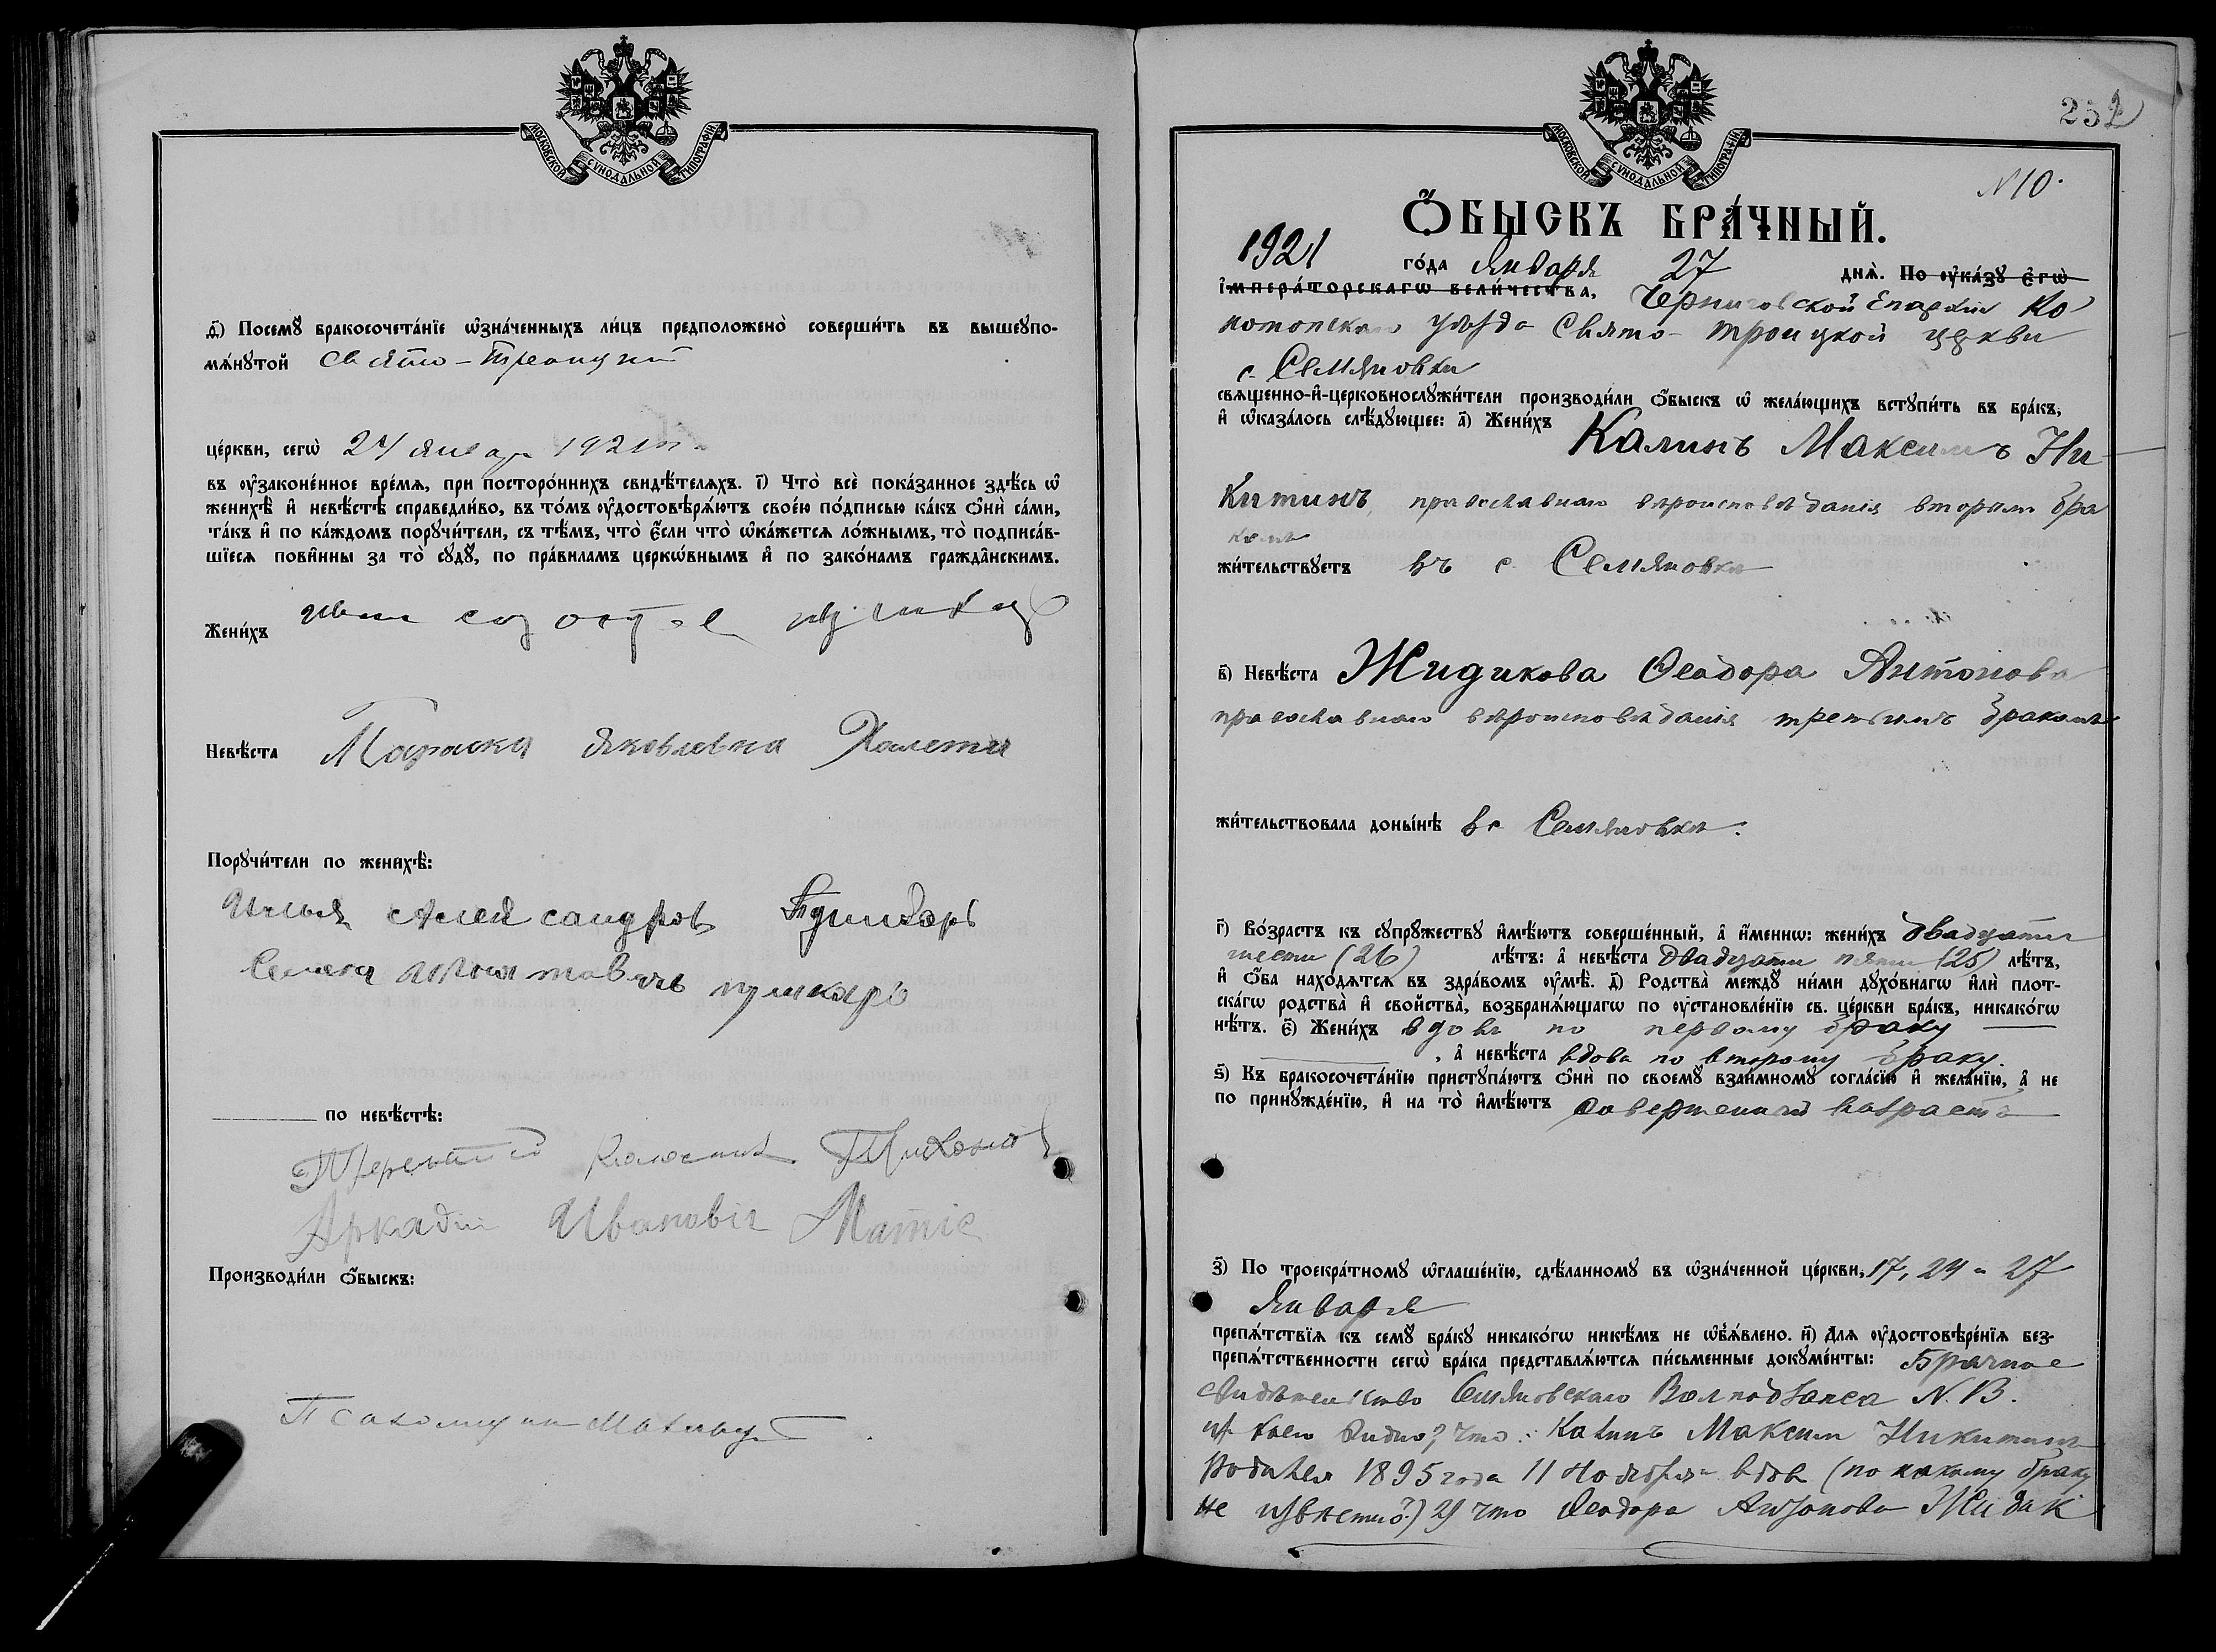 МОСКОВСКОЙ СѴНОДАЛЬНОЙ ТИПОГРАФІИ
д҃) Посемꙋ̀ бракосочета́нїе ѡ҆зна́ченныхъ ли́цъ предположено̀ соверши́ть въ вышеꙋпо-
мѧ́нꙋтой Свято-Троицкой
це́ркви, сегѡ̀ 24 января 1921 г.
въ ᲂу҆зако́ненное вре́мѧ, при посторо́ннихъ свидѣ́телѧхъ. і҃) Что̀ всѐ пока́занное здѣ́сь ѡ҆
женихѣ̀ и҆ невѣ́стѣ справедли́во, въ то́мъ ᲂу҆достовѣрѧ́ютъ свое́ю по́дписью ка́къ ѻ҆нѝ са́ми,
та́къ и҆ по ка́ждомъ порꙋчи́тели, съ тѣ́мъ, что̀ є҆́сли что̀ ѡ҆ка́жетсѧ ло́жнымъ, то̀ подписа́в-
шїесѧ пови́нны за то̀ сꙋдꙋ̀, по пра́виламъ церкѡ́внымъ и҆ по зако́намъ гражда́нскимъ.
Жени́хъ
Невѣ́ста Параска Яковлевна
Порꙋчи́тели по женихѣ̀:
Илья Алейсандров Пушкарь
пушкарь
по невѣ́стѣ:
Терентий
Аркадій Ивановіч
Производи́ли ѻ҆́быскъ:
МОСКОВСКОЙ СѴНОДАЛЬНОЙ ТИПОГРАФІИ
252
N 10.
Ѻ҆́БЫСКЪ БРА́ЧНЫЙ.
1921 го́да Января 27 днѧ̀. По ᲂу҆ка́зꙋ є҆гѡ̀
і҆мпера́торскагѡ вели́чества, Черниговской Епархіи Ко-
нотопскаго уѣзда Свято-Троицкой церкви
с. Семяновки
свѧще́нно-и҆-церковнослꙋжи́тели производи́ли ѻ҆́быскъ ѡ҆ жела́ющихъ встꙋпи́ть въ бра́къ,
и҆ ѡ҆каза́лось слѣ́дꙋющее: а҃) Жени́хъ Калинъ Максимъ Ни-
китинъ, православнаго вѣроисповѣданія вторымъ бра
комъ
жи́тельствꙋетъ въ с. Семяновки
в҃) Невѣ́ста Жидикова Ѳеодора Антонова
православнаго вѣроисповѣданія третьимъ бракомъ
жи́тельствовала доны́нѣ в с. Семяновки.
г҃) Во́зрастъ къ сꙋпрꙋ́жествꙋ и҆мѣ́ютъ соверше́нный, а҆ и҆́менно: жени́хъ двадцати
шести (26) лѣ́тъ: а҆ невѣ́ста двадцати пяти (25) лѣ́тъ,
и҆ ѻ҆́ба нахо́дѧтсѧ въ здра́вомъ ᲂу҆мѣ̀. д҃) Родства̀ междꙋ̀ ни́ми дꙋхо́внагѡ и҆лѝ плот-
ска́гѡ родства̀ и҆ сво́йства̀, возбранѧ́ющагѡ по ᲂу҆становле́нїю св. це́ркви бра́къ, никако́гѡ
нѣ́тъ. є҃) Жени́хъ вдовъ по первому браку
, а҆ невѣ́ста вдова по второму браку.
ѕ҃) Къ бракосочета́нїю пристꙋпа́ютъ ѻ҆нѝ по своемꙋ̀ взаи́мномꙋ согла́сїю и҆ жела́нїю, а҆ не
по принꙋжде́нїю, и҆ на то̀ и҆мѣ́ютъ совершенный возрастъ
з҃) По троекра́тномꙋ ѡ҆глаше́нїю, сдѣ́ланномꙋ въ ѡ҆зна́ченной це́ркви, 17, 24 и 27
Января
препѧ́тствїѧ къ семꙋ̀ бра́кꙋ никако́гѡ никѣ́мъ не ѡ҆б̾ѧ́влено. и҃) Длѧ ᲂу҆достовѣре́нїѧ без-
препѧ́тственности сегѡ̀ бра́ка представлѧ́ютсѧ пи́сьменные докꙋме́нты: Брачное
свидѣтельство Семяновскаго Волподзагса N. 13.
из коего видно, что: Калинъ Максим Никитинъ
родился 1895 года 11 Ноября вдов (по какому браку
не извѣстно?) и что Ѳеодора Антонова Жидик